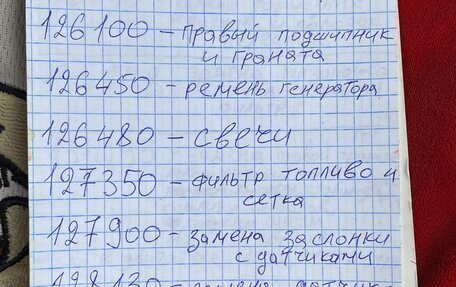 126100 - правый подшипник
и граната
126450 - ремень генератора
126480 - свечи
127350 - фильтр топливо и
сетка
127900 - замена заслонки
с датчиками
128130 - замена датчик